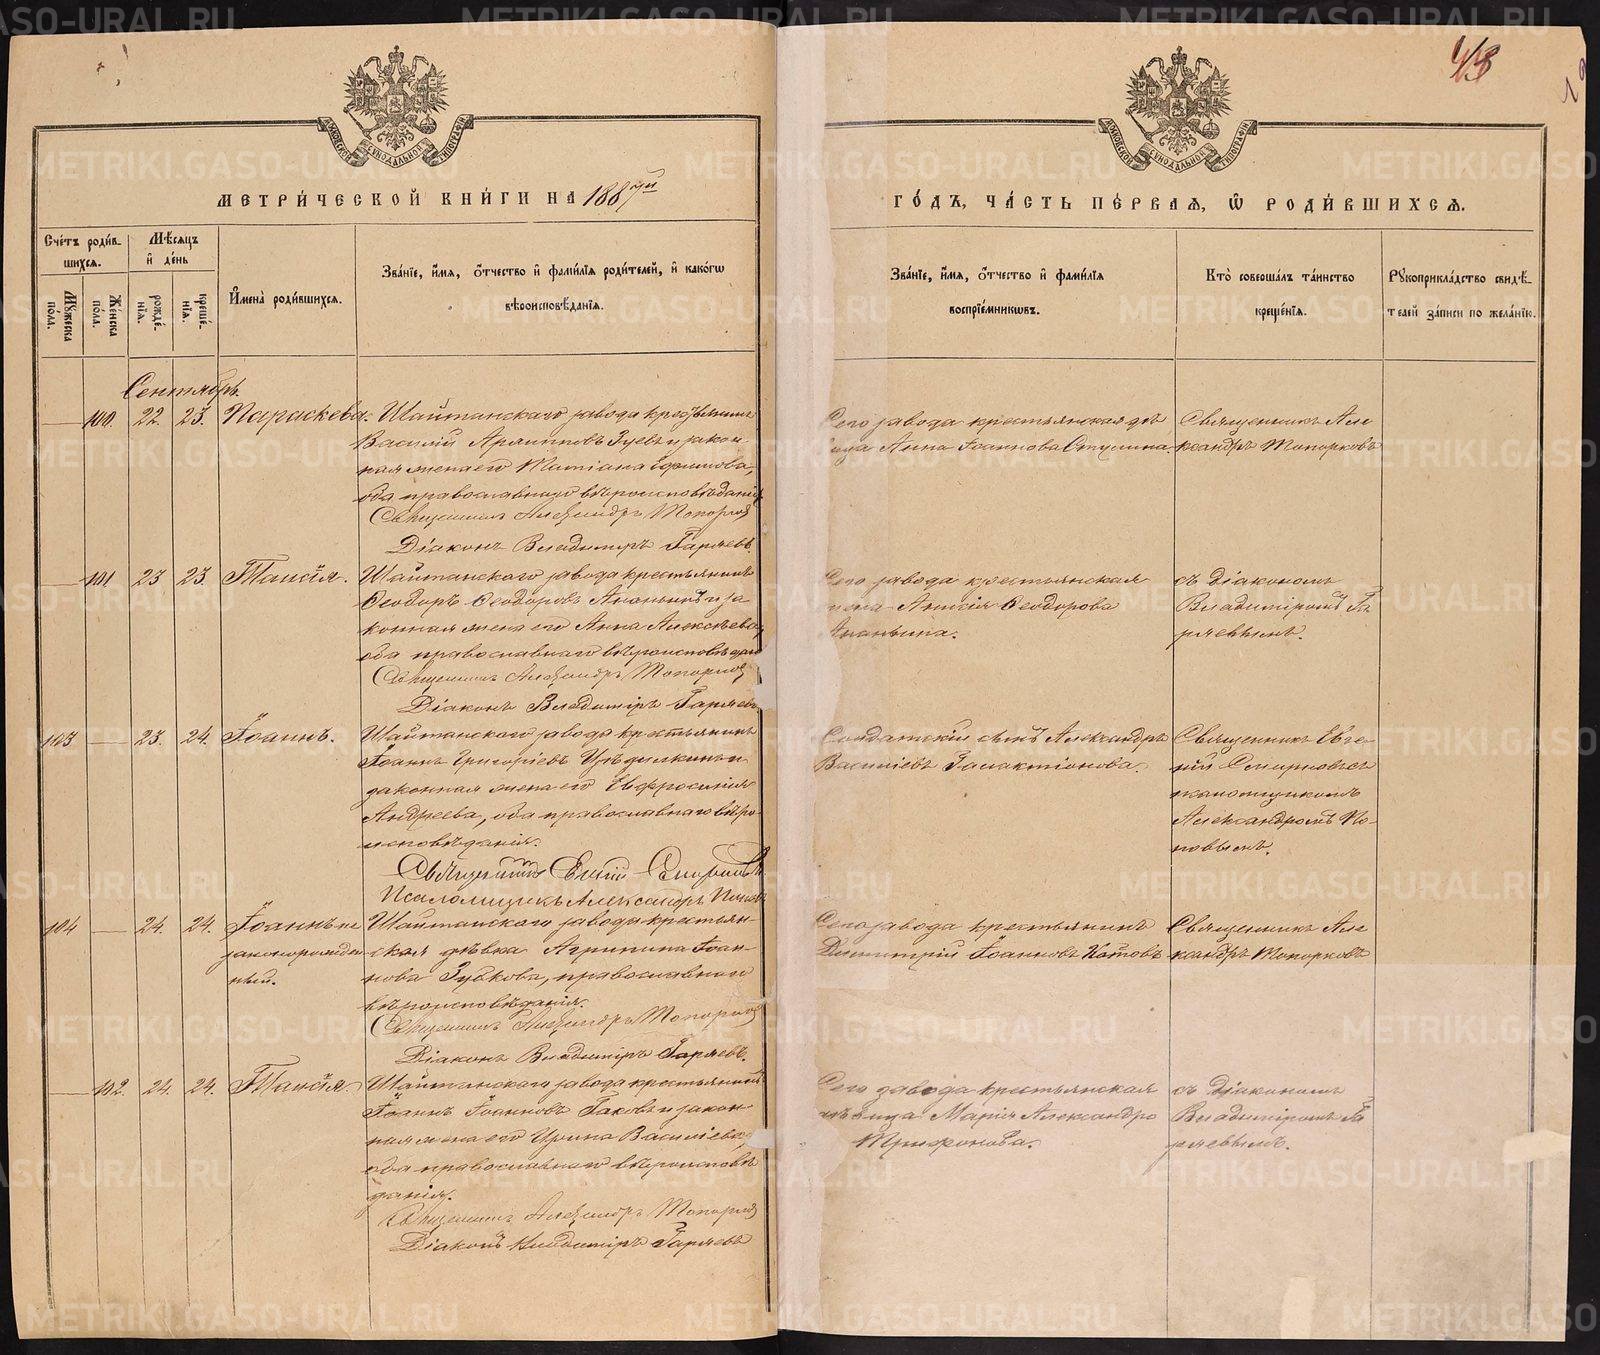 МЕТРИ́ЧЕСКОЙ КНИ́ГИ НА 1887й
ГО́ДЪ, ЧА́СТЬ ПЕ́РВАѦ, Ѽ РОДИ́ВШИХСѦ.
Сче́тъ роди́вшихсѧ.
Мꙋжеска пола.
Же́нска по́ла.
Мѣ́сѧцъ и҆ де́нь
рожде́нїѧ.
креще́нїѧ.
И҆мена̀ роди́вшихсѧ.
Зва́нїе, и҆́мѧ, ѻ҆́тчество и҆ фами́лїѧ роди́телей, и҆ како́гѡ
вѣроисповѣ́данїѧ.
Зва́нїе, и҆́мѧ, ѻ҆́тчество и҆ фами́лїѧ
воспрїе́мникѡвъ.
Кто̀ соверша́лъ та́инство
креще́нїѧ.
Рꙋкоприкла́дство свидѣ́-
телей за́писи по жела́нїю.
Сентябрь
100. 22. 23. Параскева. Шайтанскаго завода крестьянинъ
Василій Архиповъ Гуевъ и закон-
ная жена его Татіана Ефимова,
оба православнаго вѣроисповѣданія
Священникъ Александръ Топорков
Діаконъ Владимиръ Гаряевъ.
Сего завода крестьянская дѣ
вица Анна Іоаннова Ступина.
Священникъ Але
ксандръ Топорковъ
101 23 23. Таисія. Шайтанскаго завода крестьянинъ
Ѳеодоръ Ѳеодоровъ Ананьинъ и за
конная жена его Анна Алексѣева,
оба православнаго вѣроисповѣдан
Священникъ Александръ Топорков
Діаконъ Владиміръ Гаряевъ
Сего завода крестьянская
жена Анисія Ѳеодорова
Ананьина.
съ Діакономъ
Владиміромъ Га
ряевымъ.
103 23. 24. Іоаннъ. Шайтанскаго завода крестьянинъ
Іоаннъ Григоріевъ и
законная жена его Евфросинія
Андреева, оба православнаго вѣро-
исповѣданія.
Священникъ Смирновъ
Псаломщикъ Александръ Попов
Солдатскій сынъ Александръ
Василіевъ Галактіонова.
Священникъ Евге-
ній Смирновъ съ
псаломщикомъ
Александромъ По-
повымъ.
104 24. 24. Іоаннъ не
законорожден
ный.
Шайтанскаго завода крестьян-
ская дѣвка Агрипина Іоан-
нова Губкова, православнаго
вѣроисповѣданія.
Священникъ Александръ Топорков
Діаконъ Владиміръ Гаряевъ.
Сего завода крестьянинъ
Димитрій Іоанновъ Котовъ
Священникъ Але
ксандръ Топорковъ
102. 24. 24. Таисія. Шайтанскаго завода крестьянинъ
Іоаннъ Іоанновъ и закон-
ная жена его Ирина Василіева,
оба православнаго вѣроисповѣ
данія.
Священникъ Александръ Топорков
Діаконъ Владиміръ Гаряевъ
Сего завода крестьянская
дѣвица Марія Александро
Трифонова.
съ Діакономъ
Владиміромъ Га
ряевымъ.
METRIKI.GASO-URAL.RU